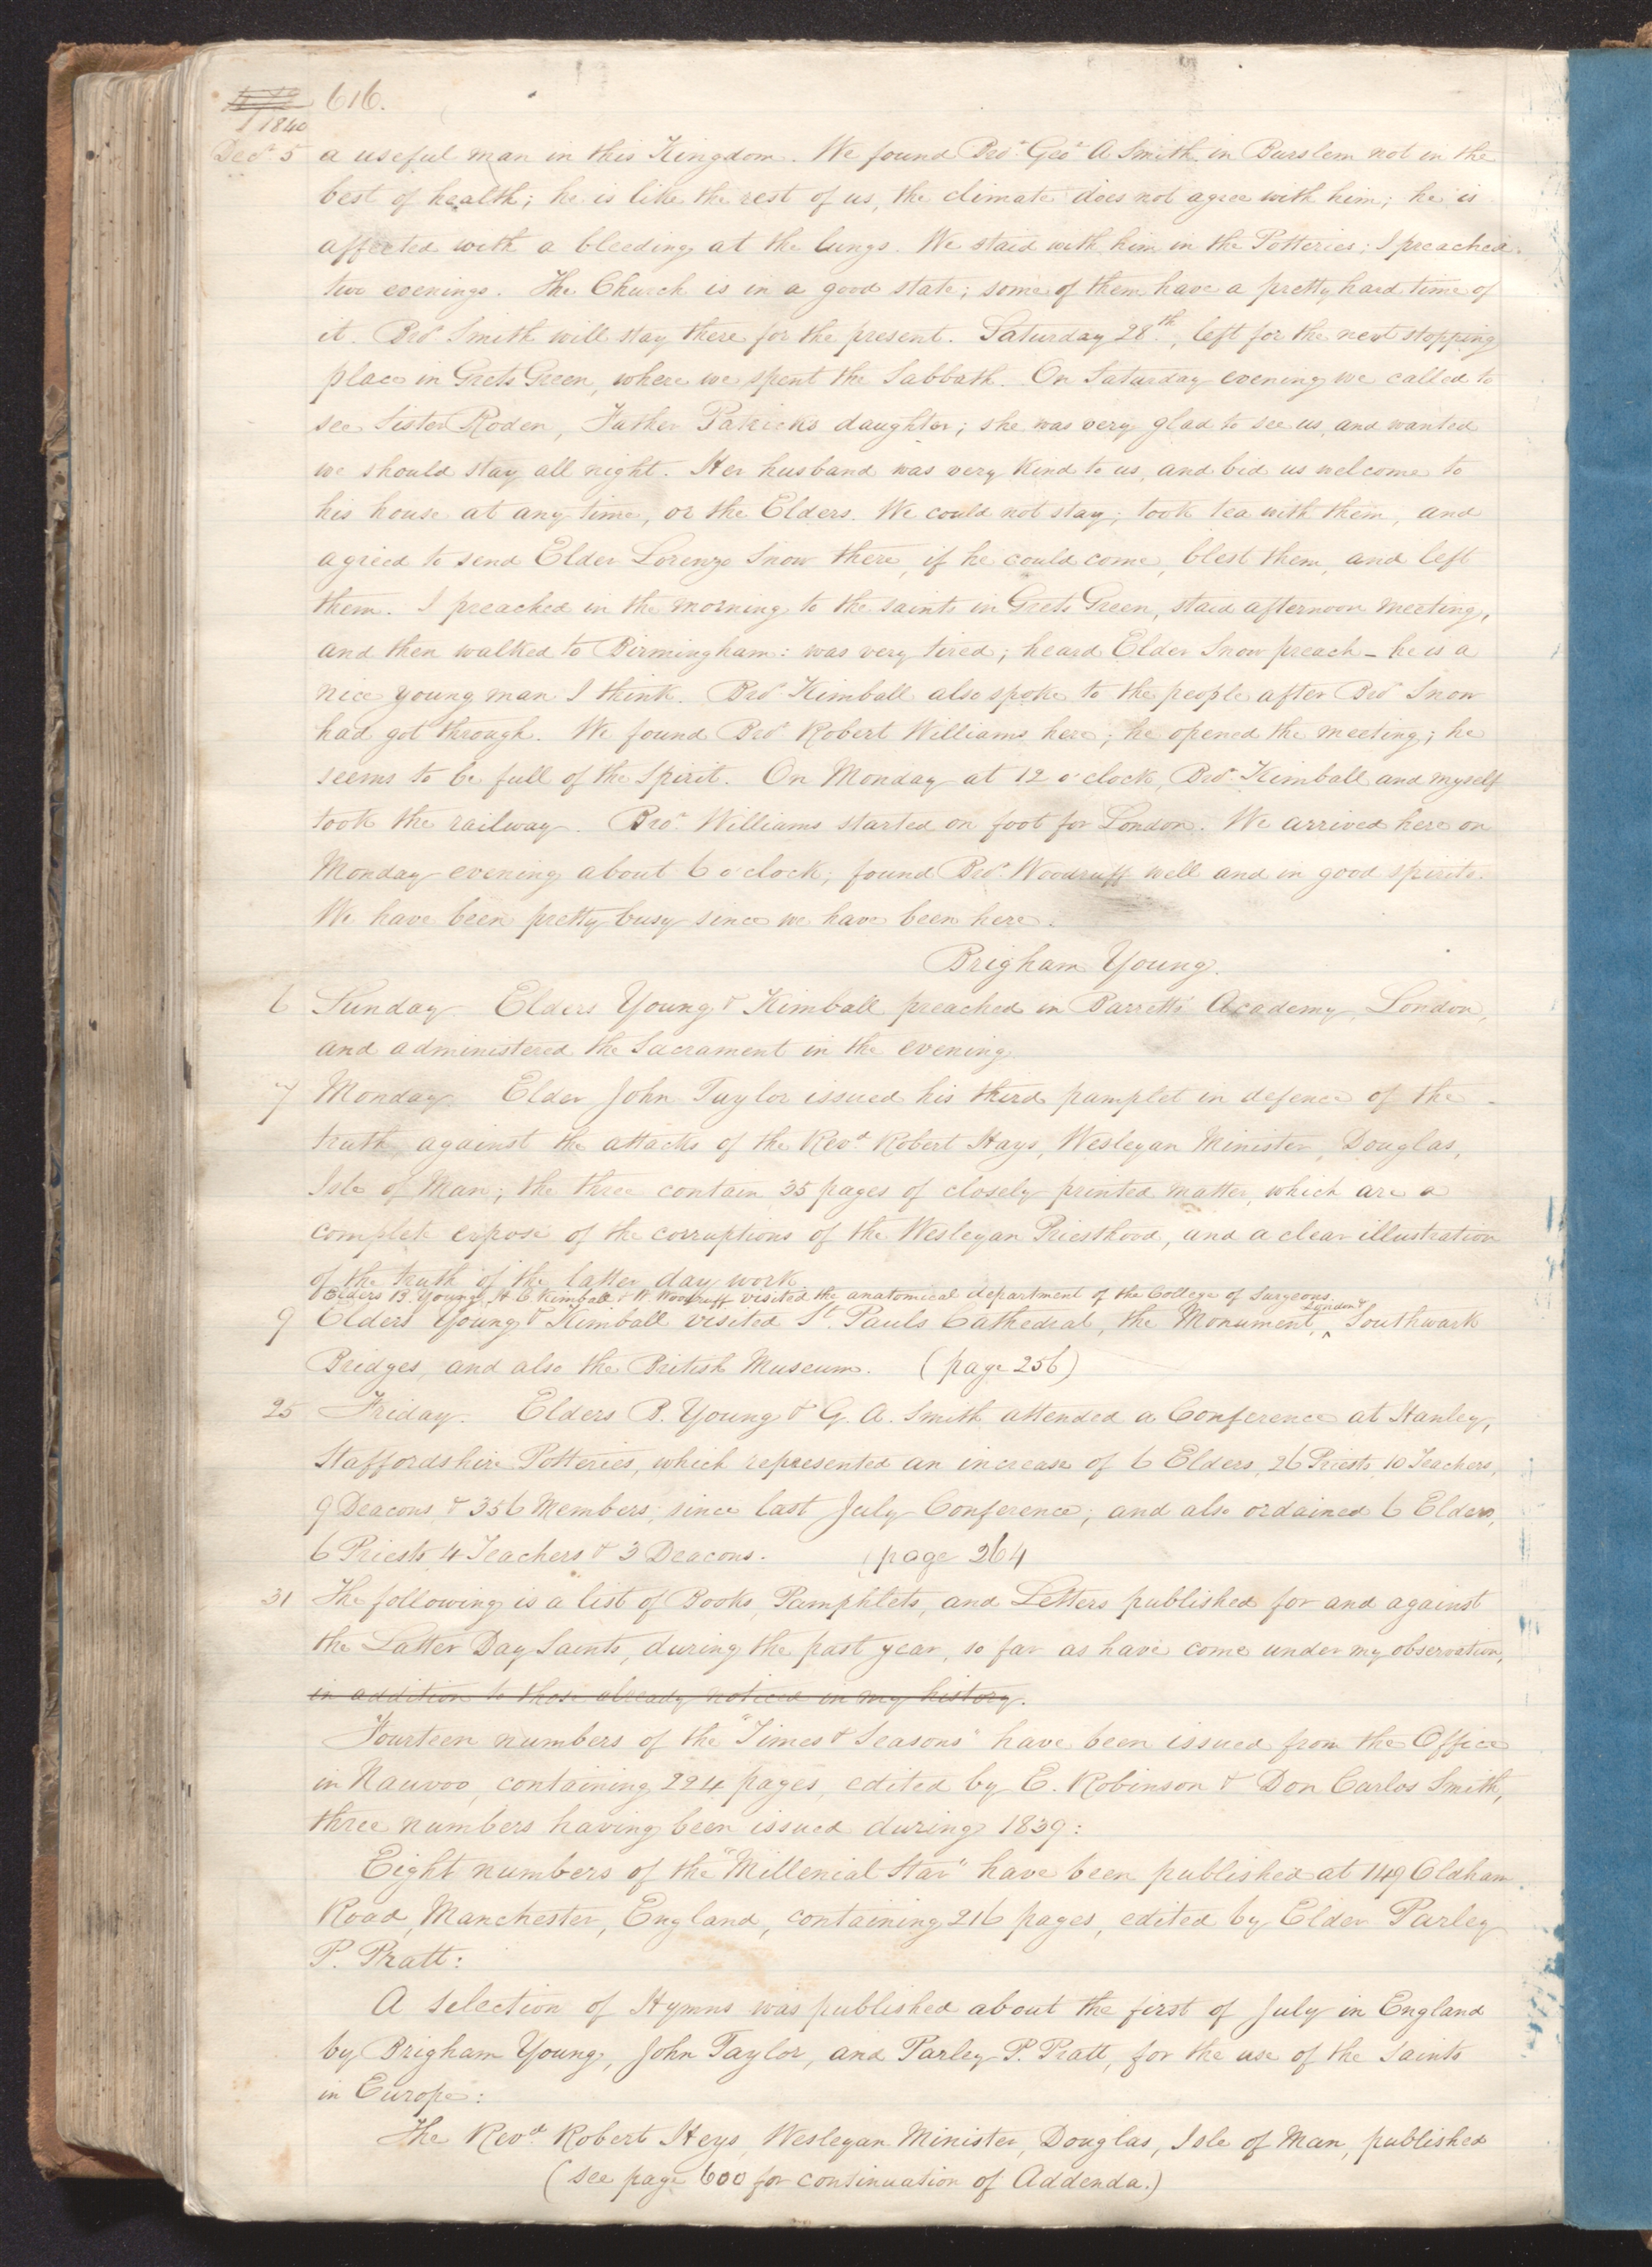 616.
1840
Decr. 5 a useful man in this Kingdom. We found Bror. Geor. A Smith in Burslem not in the
best of health; he is like the rest of us, the climate does not agree with him; he is
affected with a bleeding at the lungs. We staid with him in the Potteries; I preached
two evenings. The Church is in a good state; some of them have a pretty hard time of
it. Bror Smith will stay there for the present. Saturday 28th., left for the next stopping
place in Grets Green, where we spent the Sabbath. On Saturday evening we called to
see Sister Roden, Father Patricks daughter; she was very glad to see us, and wanted
we should stay all night. Her husband was very kind to us, and bid us welcome to
his house at any time, or the Elders. We could not stay; took tea with them, and
agreed to send Elder Lorenzo Snow there, if he could come, blest them, and left
them. I preached in the morning to the saints in Grets Green, staid afternoon meeting,
and then walked to Birmingham: was very tired; heard Elder Snow preach - he is a
nice young man I think. Bror Kimball also spoke to the people after Bror Snow
had got through. We found Bror. Robert Williams here; he opened the meeting; he
seems to be full of the Spirit. On Monday at 12 o'clock, Bror. Kimball and myself
took the railway. Bror. Williams started on foot for London. We arrived here on
Monday evening about 6 o'clock; found Bror. Woodruff well and in good spirits.
We have been pretty busy since we have been here.
Brigham Young.
6 Sunday. Elders Young & Kimball preached in Barrett's Academy, London,
and administered the Sacrament in the evening.
7 Monday. Elder John Taylor issued his third pamplet in defence of the
truth, against the attacks of the Revd. Robert Hays, Wesleyan Minister, Douglas,
Isle of Man; the three contain 35 pages of closely printed matter, which are a
complete expose of the corruptions of the Wesleyan Priesthood, and a clear illustration
of the truth of the latter day work.
Elders B. Young, H C Kimball & W Woodruff visited the anatomical department of the College of Surgeons.
9 Elders Young & Kimball visited St. Pauls Cathedral, the Monument, London & Southwark
Bridges, and also the British Museum. (page 256)
25 Friday. Elders B. Young & G. A. Smith attended a Conference at Hanley,
Staffordshire Potteries, which represented an increase of 6 Elders, 26 Priests, 10 Teachers,
9 Deacons & 356 Members; since last July Conference; and also ordained 6 Elders,
6 Priests 4 Teachers & 3 Deacons. (page 264
31 The following is a list of Books, Pamphlets, and Letters published for and against
the Latter Day Saints, during the past year, so far as have come under my observation,
in addition to those already noticed in my history.
Fourteen numbers of the "Times & Seasons" have been issued from the Office
in Nauvoo, containing 224 pages, edited by E. Robinson & Don Carlos Smith,
three numbers having been issued during 1839:
Eight numbers of the "Millenial Star" have been published at 149 Oldham
Road, Manchester, England, containing 216 pages, edited by Elder Parley
P. Pratt:
A selection of Hymns was published about the first of July in England
by Brigham Young, John Taylor, and Parley P. Pratt, for the use of the Saints
in Europe:
The Revd. Robert Heys, Wesleyan Minister, Douglas, Isle of Man, published
(see page 600 for continuation of Addenda.)